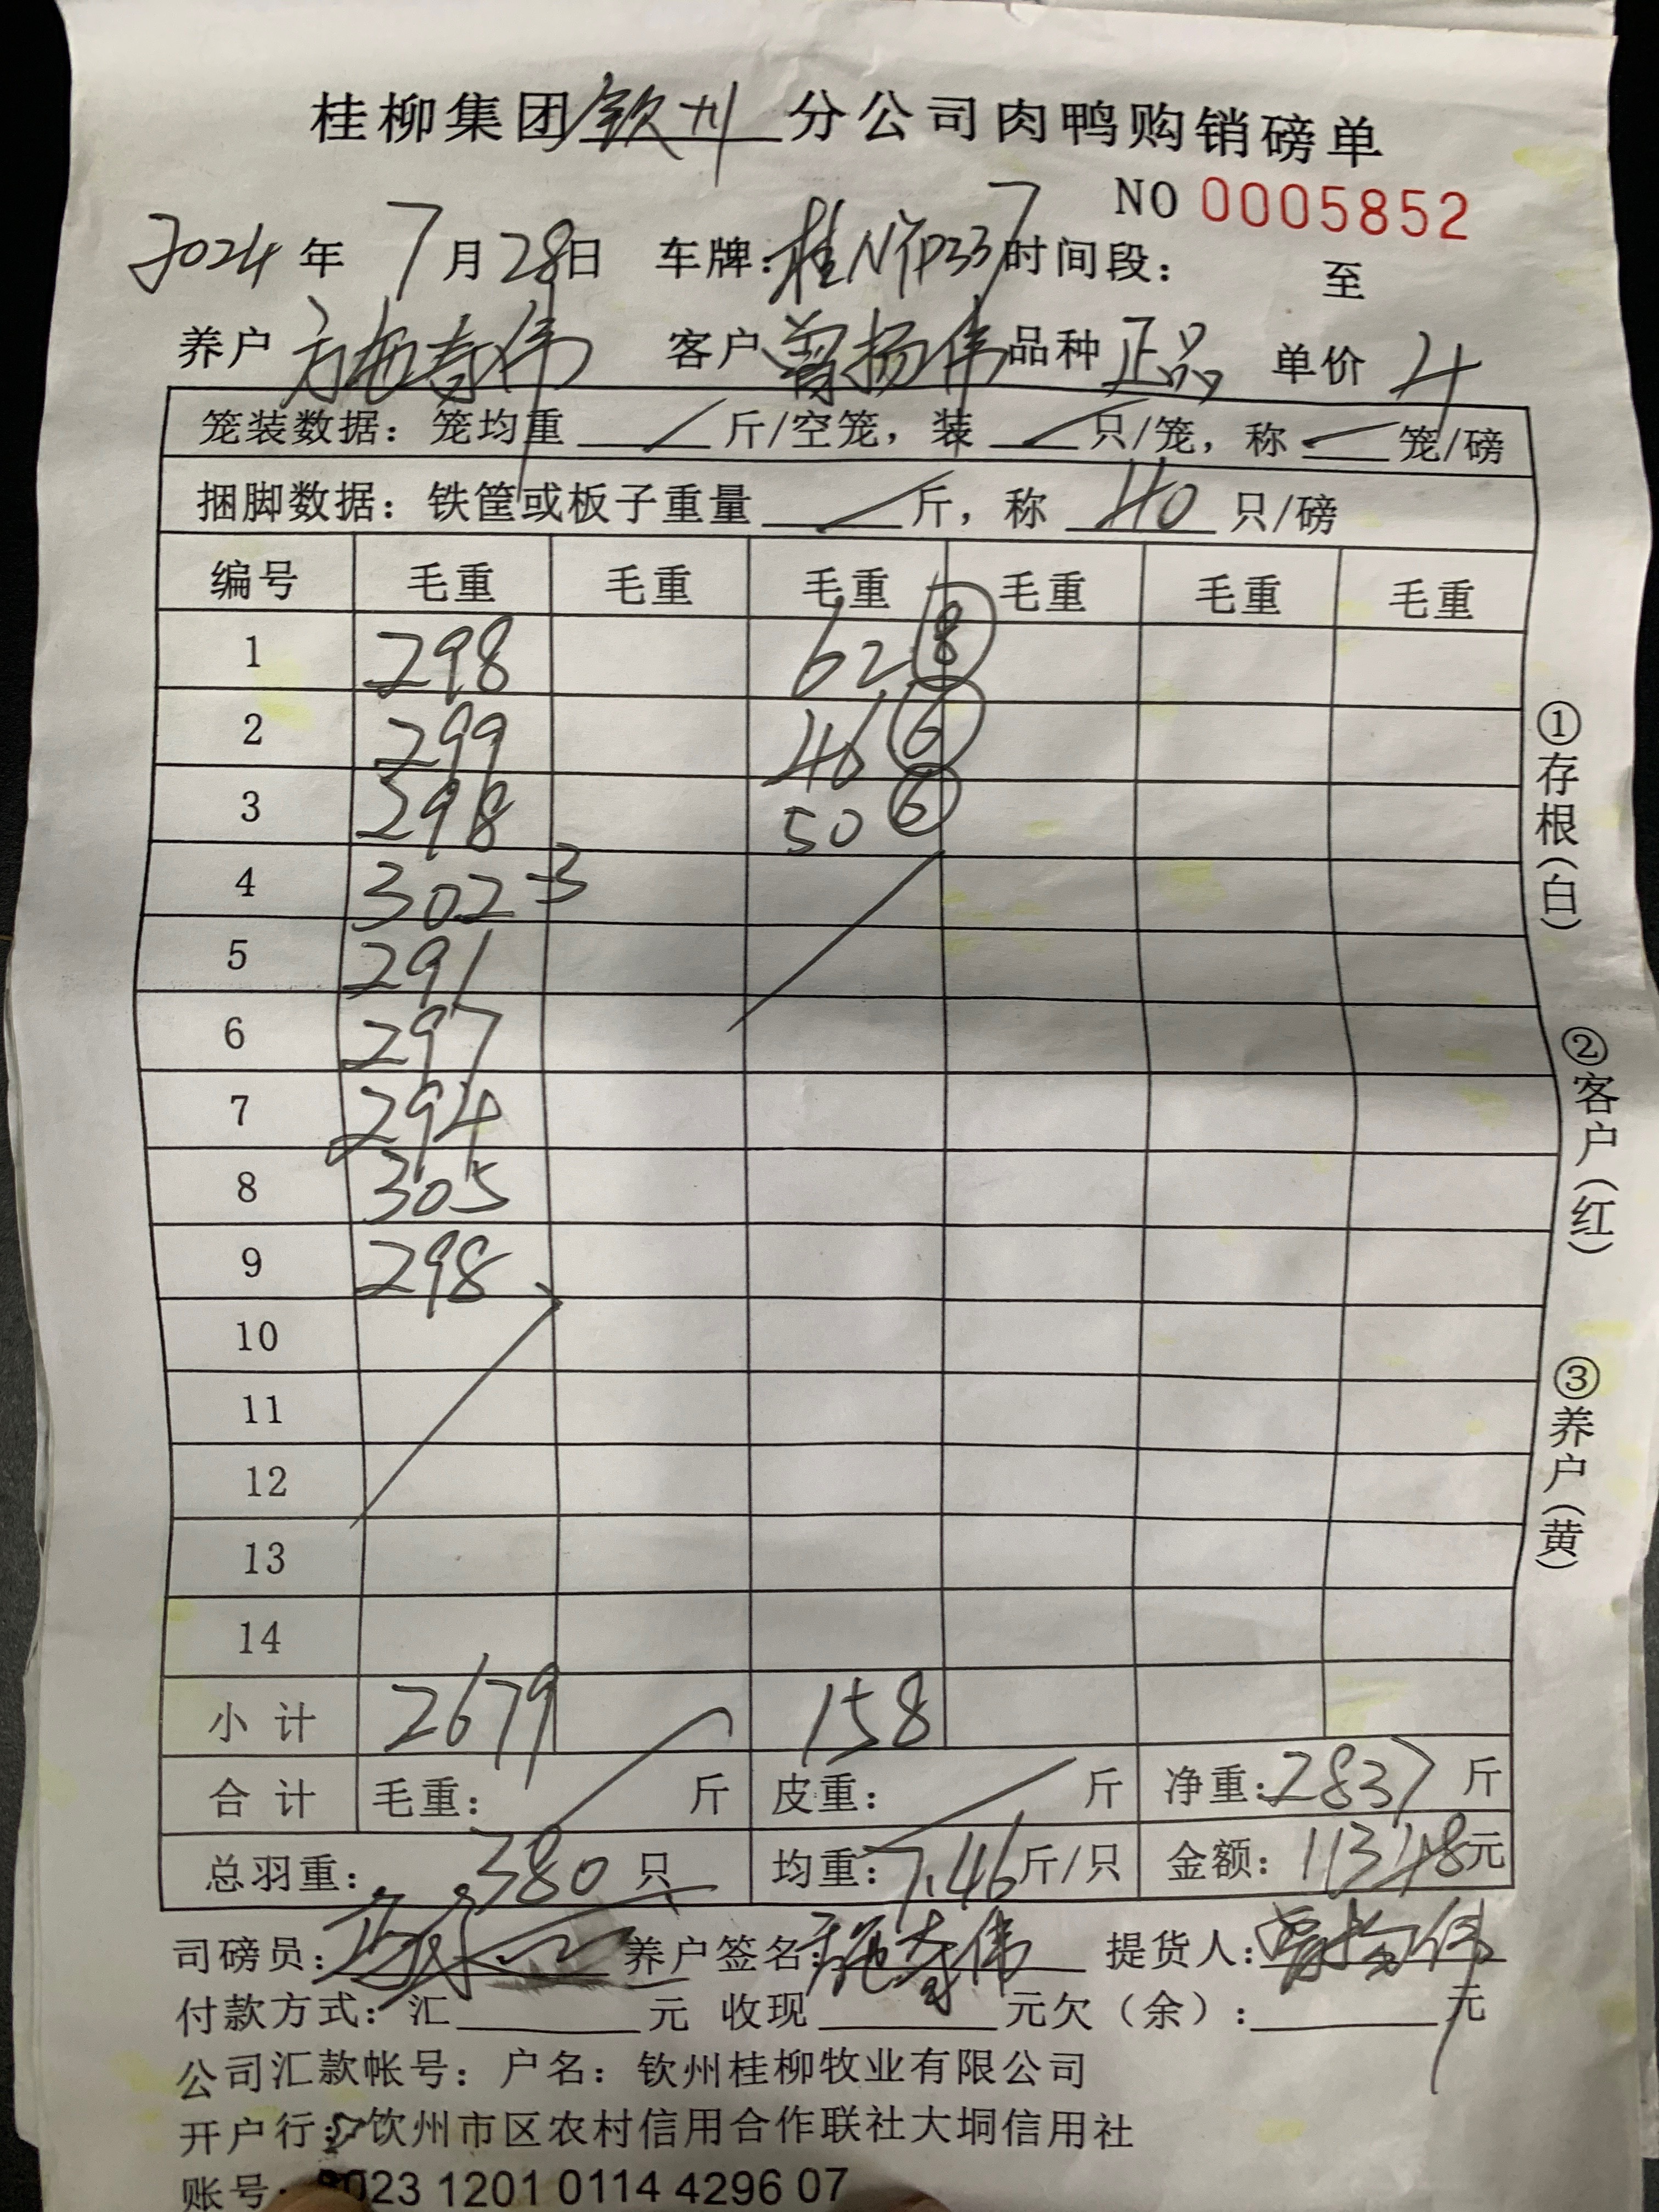 桂柳集团钦州分公司肉鸭购销磅单
NO 0005852
2024年 7月28日 车牌:桂N 时间段: 至
养户 方施寿伟 客户 曾扬伟 品种 正品 单价 4
笼装数据: 笼均重 斤/空笼, 装 只/笼, 称 笼/磅
捆脚数据: 铁筐或板子重量 斤, 称 40 只/磅
编号 毛重 毛重 毛重 毛重 毛重 毛重
1 298 62 8
2 299 46 6
3 298 50 6
4 302 -3
5 291
6 297
7 294
8 305
9 298
10
11
12
13
14
小计 2679 158
合计 毛重: 斤 皮重: 斤 净重:2837斤
总羽重: 380只 均重:7.46斤/只 金额: 11348元
司磅员: 养户签名:施寿伟 提货人:曾扬伟
付款方式: 汇 元 收现 元欠(余): 元
公司汇款帐号: 户名: 钦州桂柳牧业有限公司
开户行: 钦州市区农村信用合作联社大垌信用社
账号: 023 1201 0114 4296 07
①存根(白)
②客户(红)
③养户(黄)